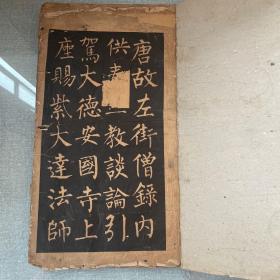 唐故左街僧錄內
供奉三教談論引
駕大德安國寺上
座賜紫大達法師